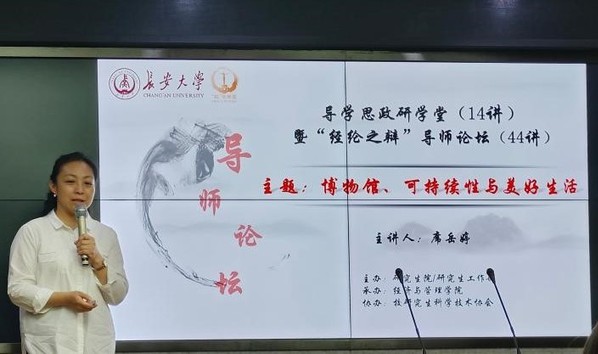 長安大學
CHANG'AN UNIVERSITY
导师论坛
导学思政研学堂（14讲）
暨“经纶之辩”导师论坛（44讲）
主题：博物馆、可持续性与美好生活
主讲人：席岳婷
主办：研究生院/研究生工作
承办：经济与管理学院
协办：校研究生科学技术协会